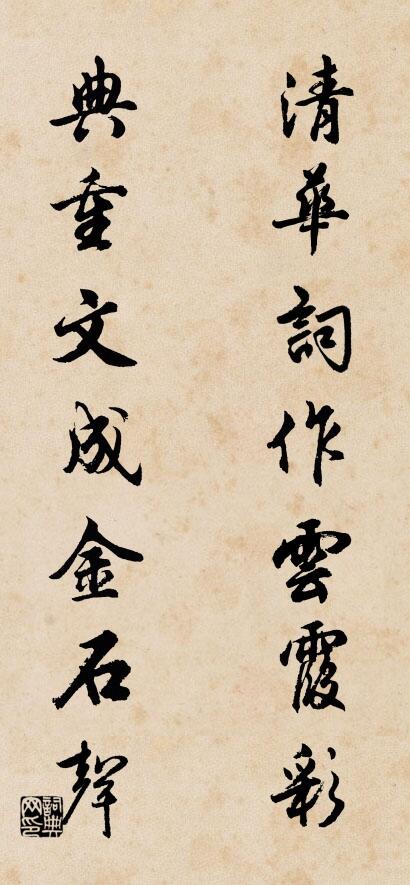 清華詞作雲霞彩
典重文成金石聲
詞典網印